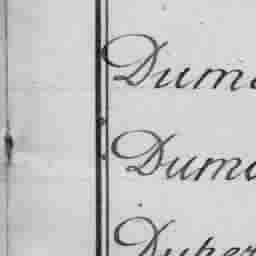 Duma
Duma
Duper